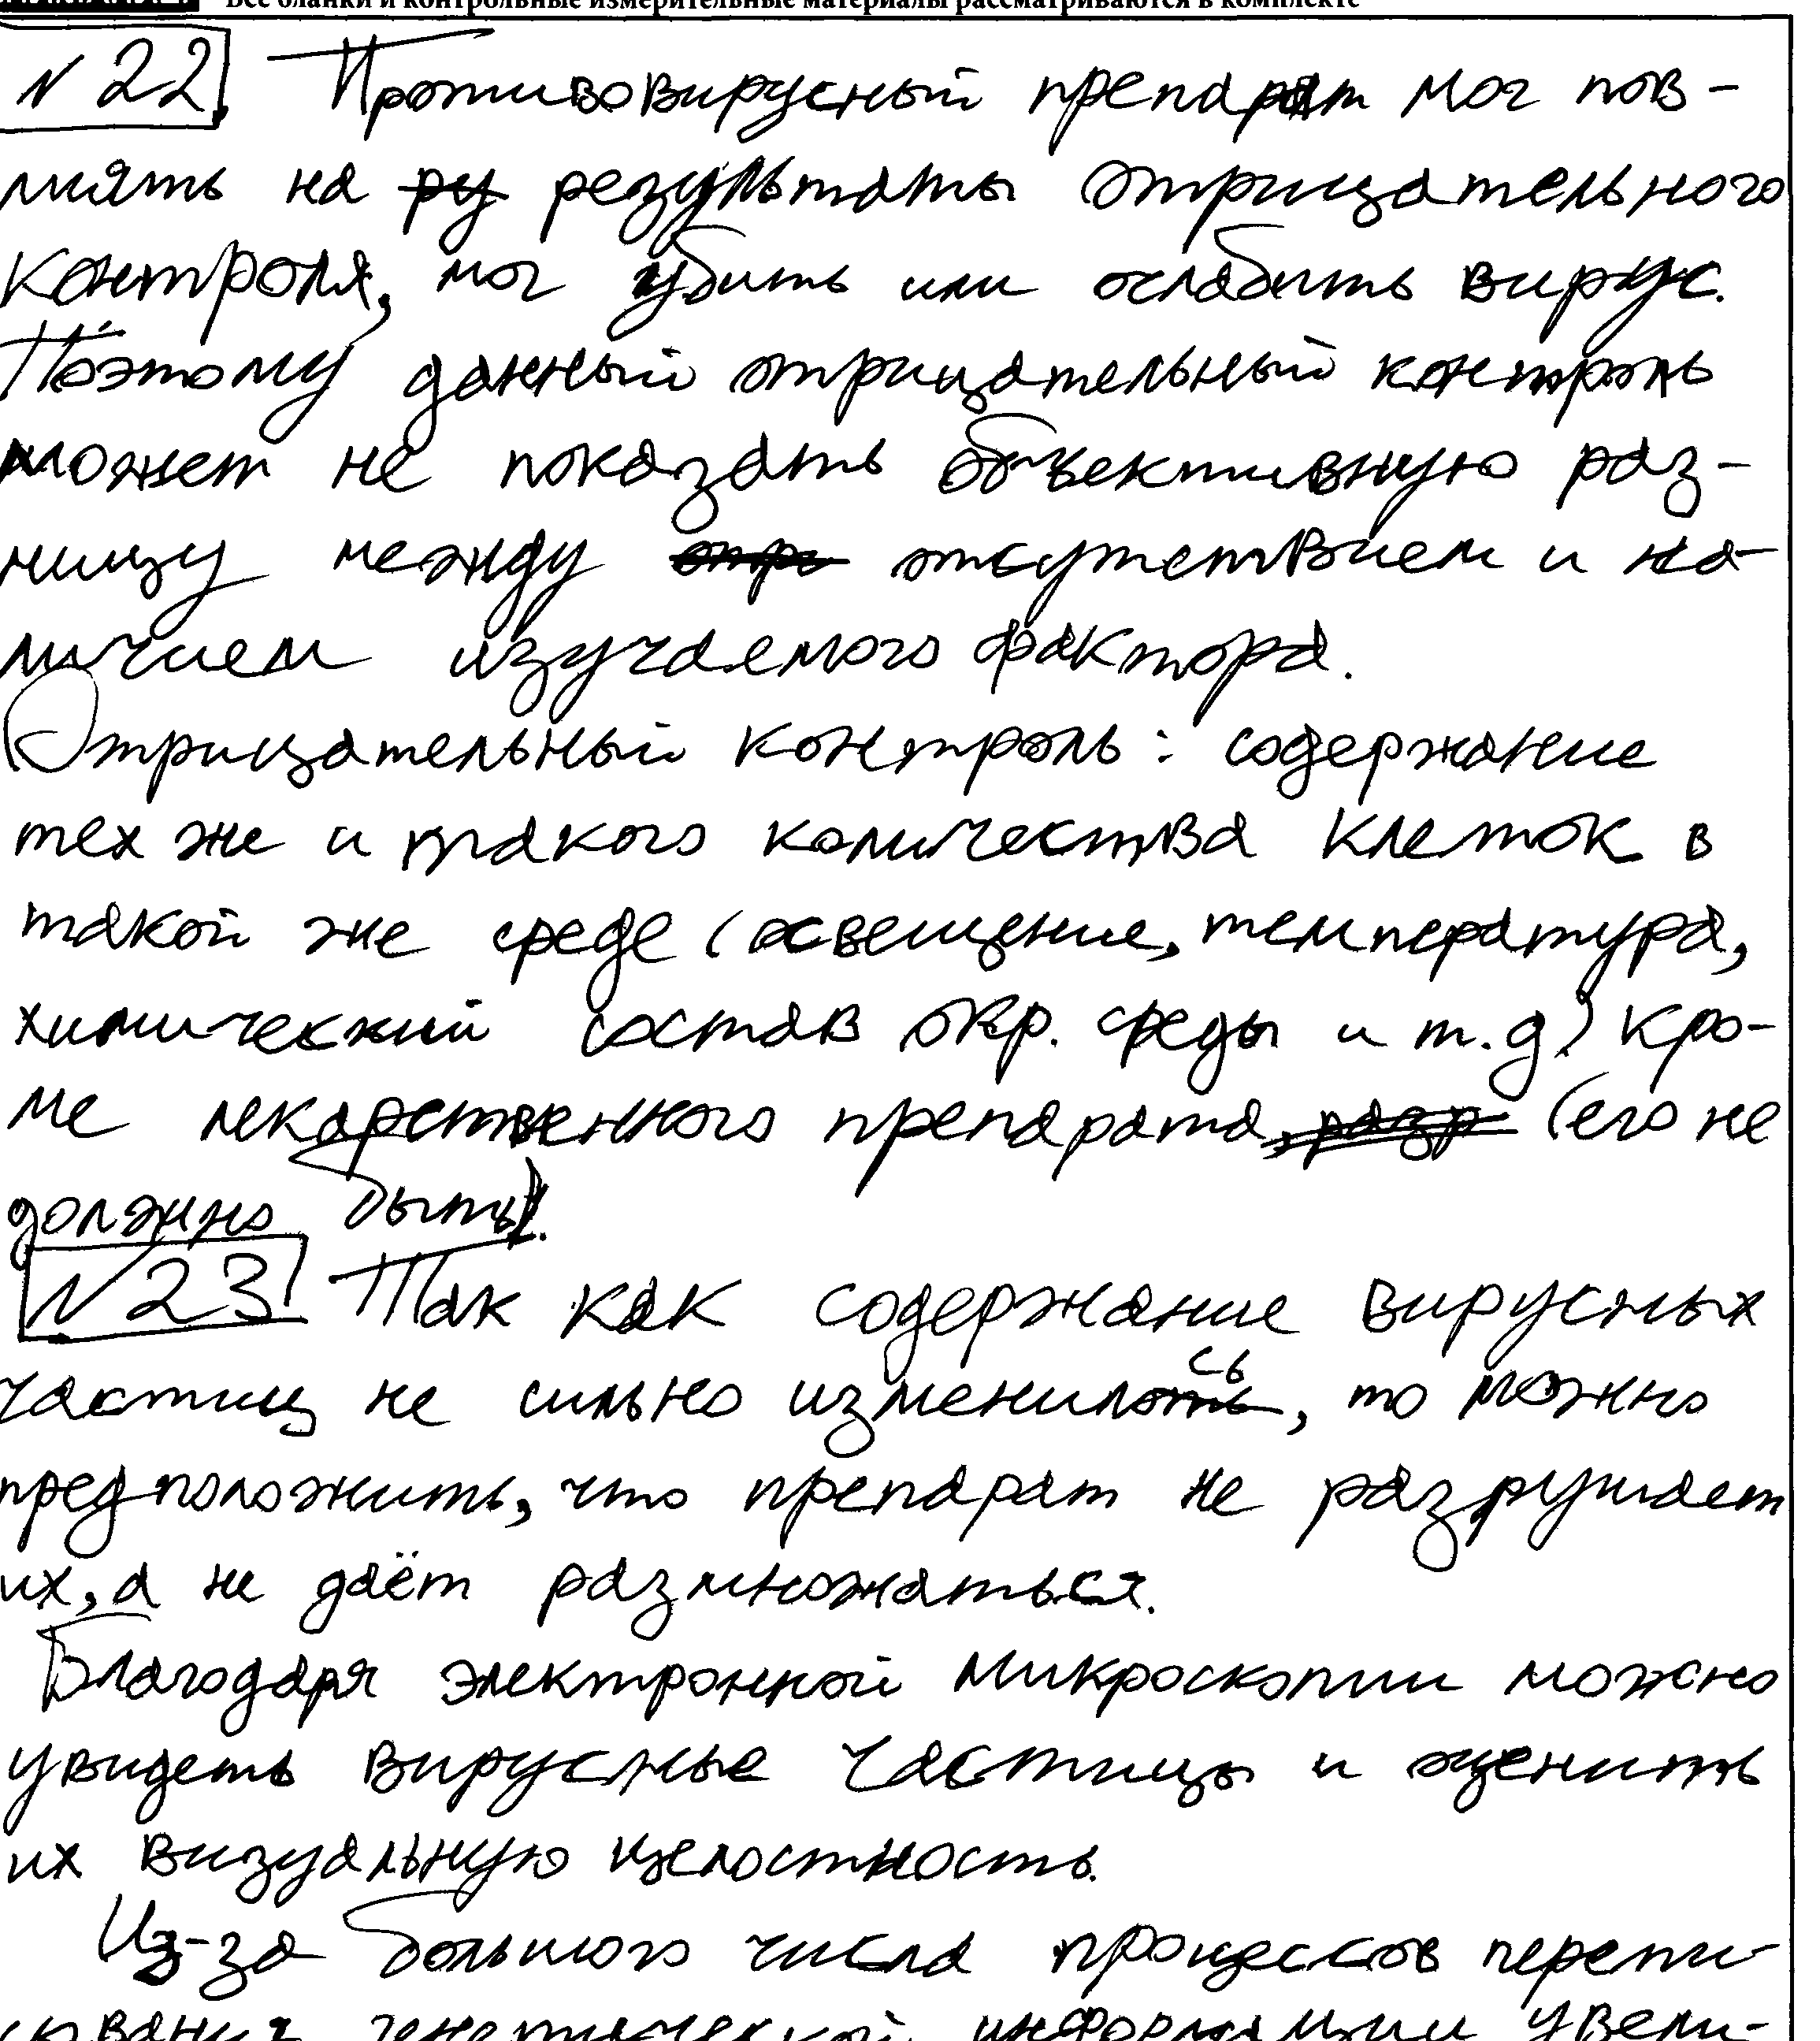 Все бланки и контрольные измерительные материалы рассматриваются в комплекте
№ 22. Противовирусный препарат мог пов-
лиять на ру результаты отрицательного
контроля, мог убить или ослабить вирус.
Поэтому данный отрицательный контроль
может не показать объективную раз-
ницу между отри отсутствием и на-
личием изучаемого фактора.
Отрицательный контроль: содержание
тех же и такого количества клеток в
такой же среде (освещение, температура,
химический состав окр. среды и т.д.) кро-
ме лекарственного препарата, разр (его не
должно быть).
№ 23. Так как содержание вирусных
частиц не сильно изменилось, то можно
предположить, что препарат не разрушает
их, а не даёт размножаться.
Благодаря электронной микроскопии можно
увидеть вирусные частицы и оценить
их визуальную целостность.
Из-за большого числа процессов перепи-
сывания генетической информации увели-